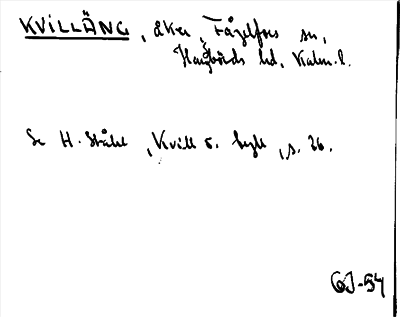 KVILLÄNG, åker, Fågelfors sn,
Handbörds hd, Kalm. l.
Se H. Ståhl, Kvill o. Tyll, s. 26.
GJ-54